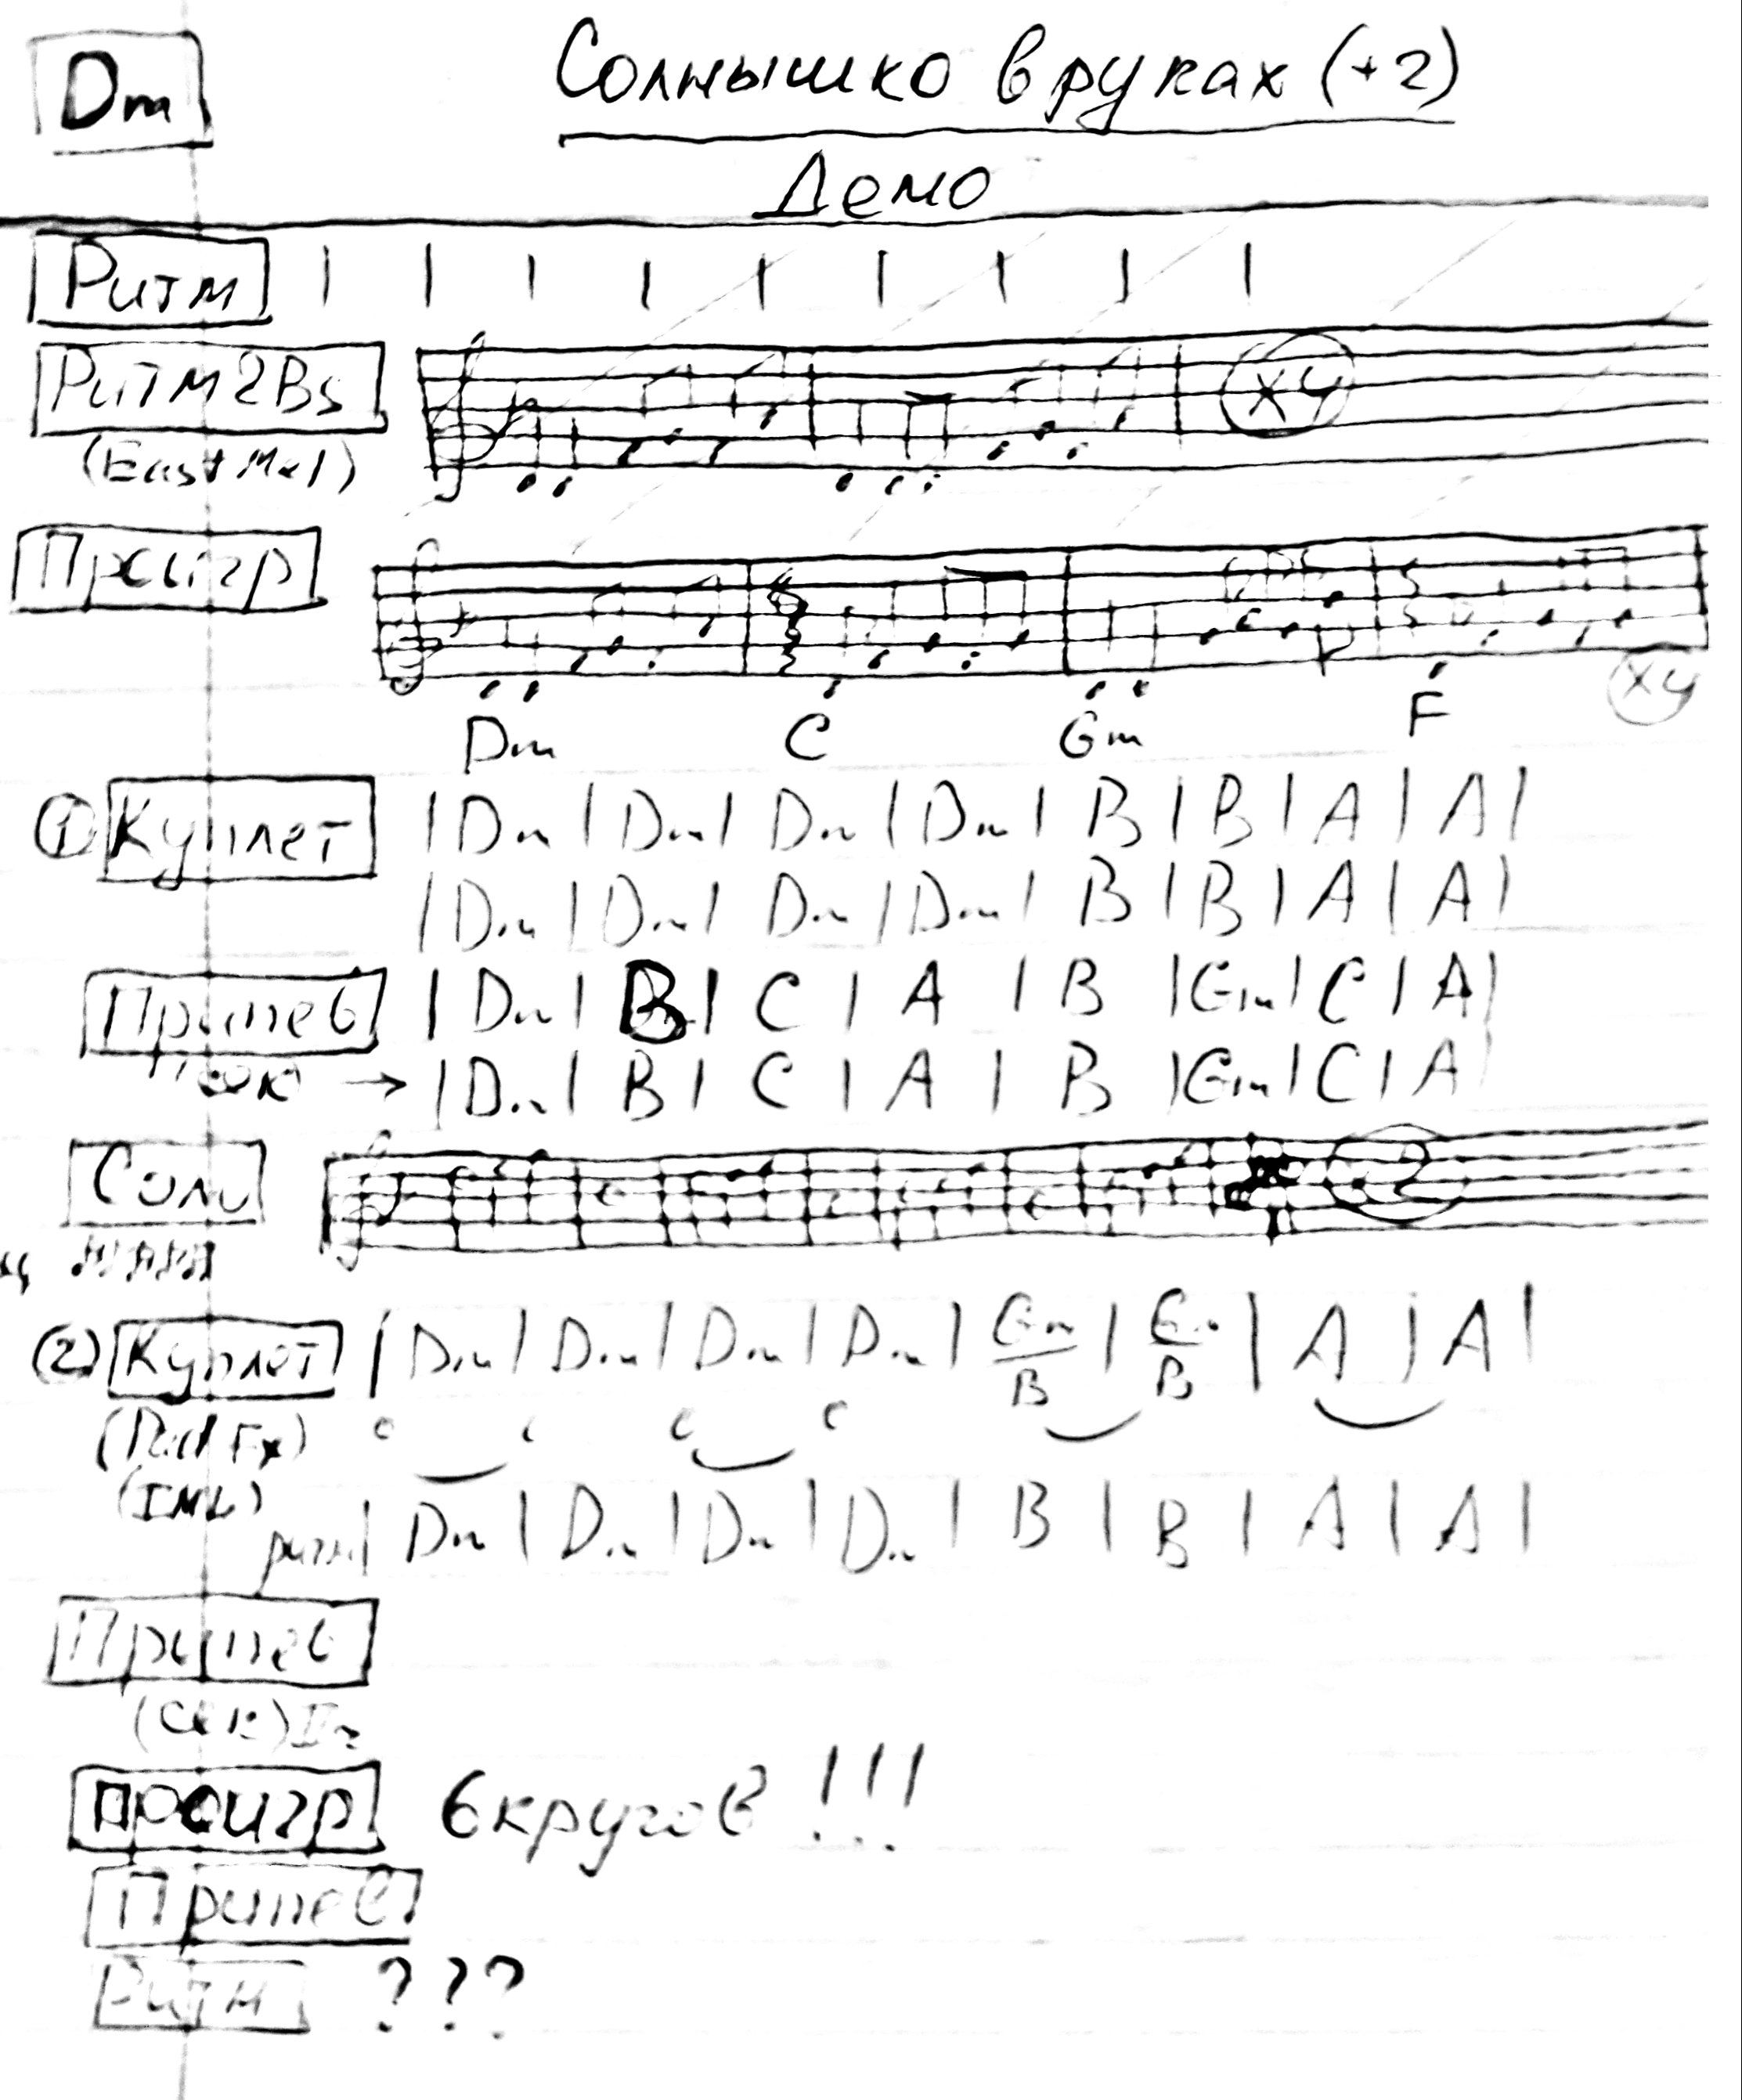 Dm Солнышко в руках (+2)
Демо
Ритм | | | | | | | | |
Ритм 2 Bs x4
(East Mel)
Проигр
x4
Dm C Gm F
① Куплет | Dm | Dm | Dm | Dm | B | B | A | A |
| Dm | Dm | Dm | Dm | B | B | A | A |
Припев | Dm | B | C | A | B | Gm | C | A |
→ | Dm | B | C | A | B | Gm | C | A
Соло 2
(2) Куплет | Dm | Dm | Dm | Dm | Gm/B | Gm/B | A | A |
(Pad Fx)
ритм | Dm | Dm | Dm | Dm | B | B | A | A |
Припев
Проигр 6 кругов !!!
Припев
Ритм ???